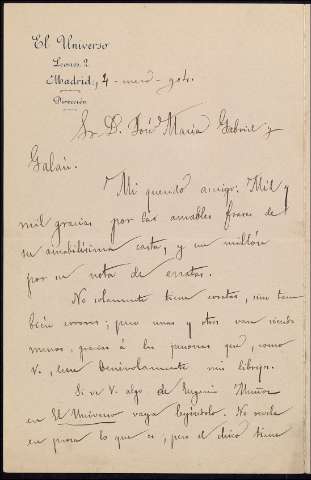 El Universo
Leones, 2
Madrid, 4 - enero - 904.
Dirección
Sr. D. José María Gabriel y
Galán.
Mi querido amigo: Mil y
mil gracias por las amables frases de
su amabilísima carta, y un millón
por su nota de erratas.
No solamente tiene ersatas, sino tam
bién errores; pero unas y otros van siendo
menos, gracias á las personas que, como
V., leen benévolamente mis
Si ve V. algo de Eugenio Muñoz
en El Universo vaya leyéndolo. No revela
en prosa lo que es, pero el chico tiene